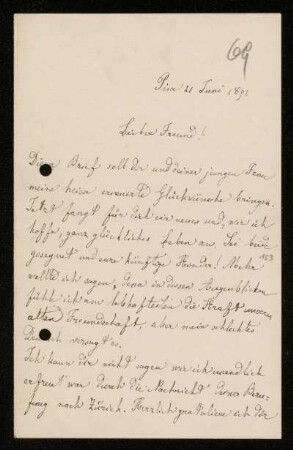 69
Pisa 21 Juni 1892
Lieber Freund!
Dieser Brief soll dir und deiner jungen Frau
meine heissen Glückwünsche bringen.
Jetzt fangt für dich ein neues und, wie ich
hoffe, ganz glückliches Leben an. Sei
gesegnet und eure künftige Kinder! Mehr
wollte ich sagen, denn in diesen Augenblicken
fühle ich am lebhaftesten die Kraft unserer
alten Freundschaft, aber mein schlechtes
Deutsch versagt es.
Ich kann dir nicht sagen wie ich unendlich
erfreut war durch die Nachricht deiner Beru-
fung nach Zürich. Herzlich gratuliere ich dir